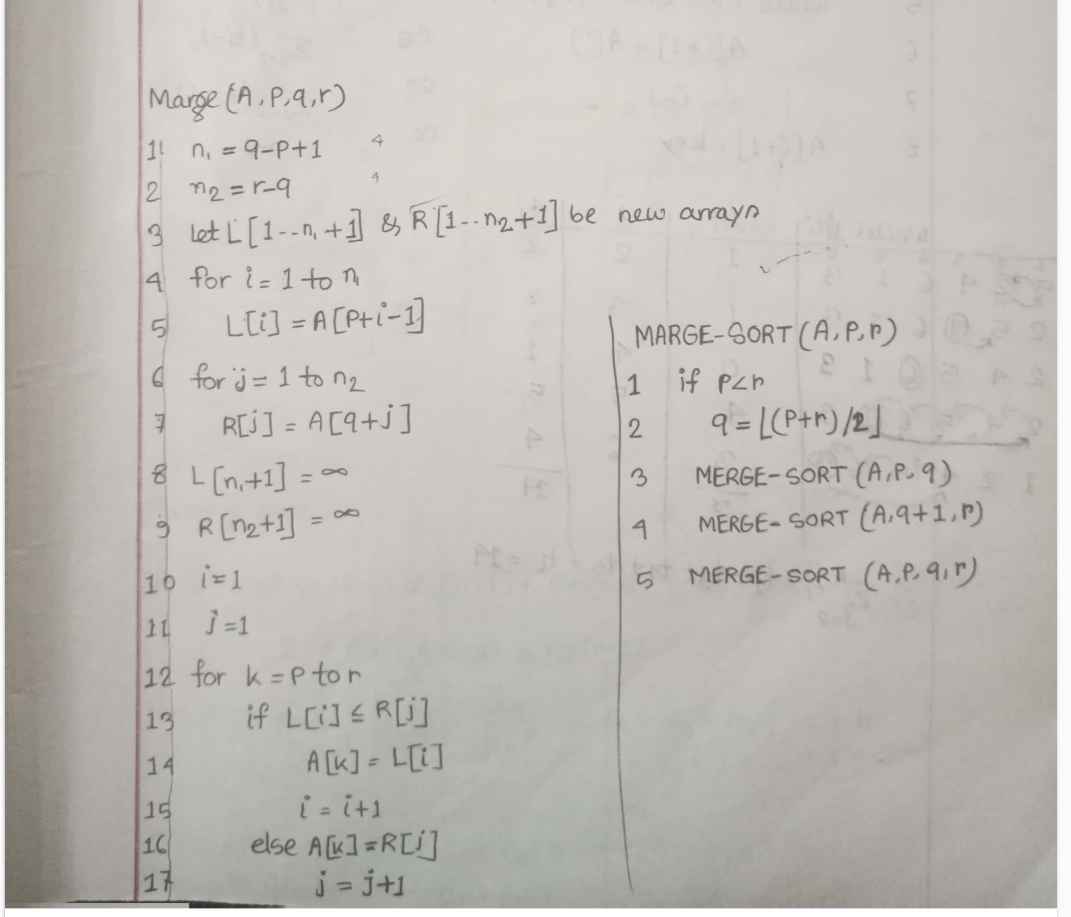 Marge (A, P, q, r)
1 n₁ = q-P+1 4
2 n₂ = r-q 4
3 Let L [1--n₁+1] & R [1--n₂+1] be new arrays
4 for i = 1 to n₁
5 L[i] = A[P+i-1]
6 for j = 1 to n₂
7 R[j] = A[q+j]
8 L [n₁+1] = ∞
9 R [n₂+1] = ∞
10 i=1
11 j=1
12 for k = P to r
13 if L[i] ≤ R[j]
14 A[k] = L[i]
15 i = i+1
16 else A[k] = R[j]
17 j = j+1
MARGE-SORT (A, P, r)
1 if P<r
2 q = ⌊(P+r)/2⌋
3 MERGE-SORT (A, P, q)
4 MERGE-SORT (A, q+1, r)
5 MERGE-SORT (A, P, q, r)